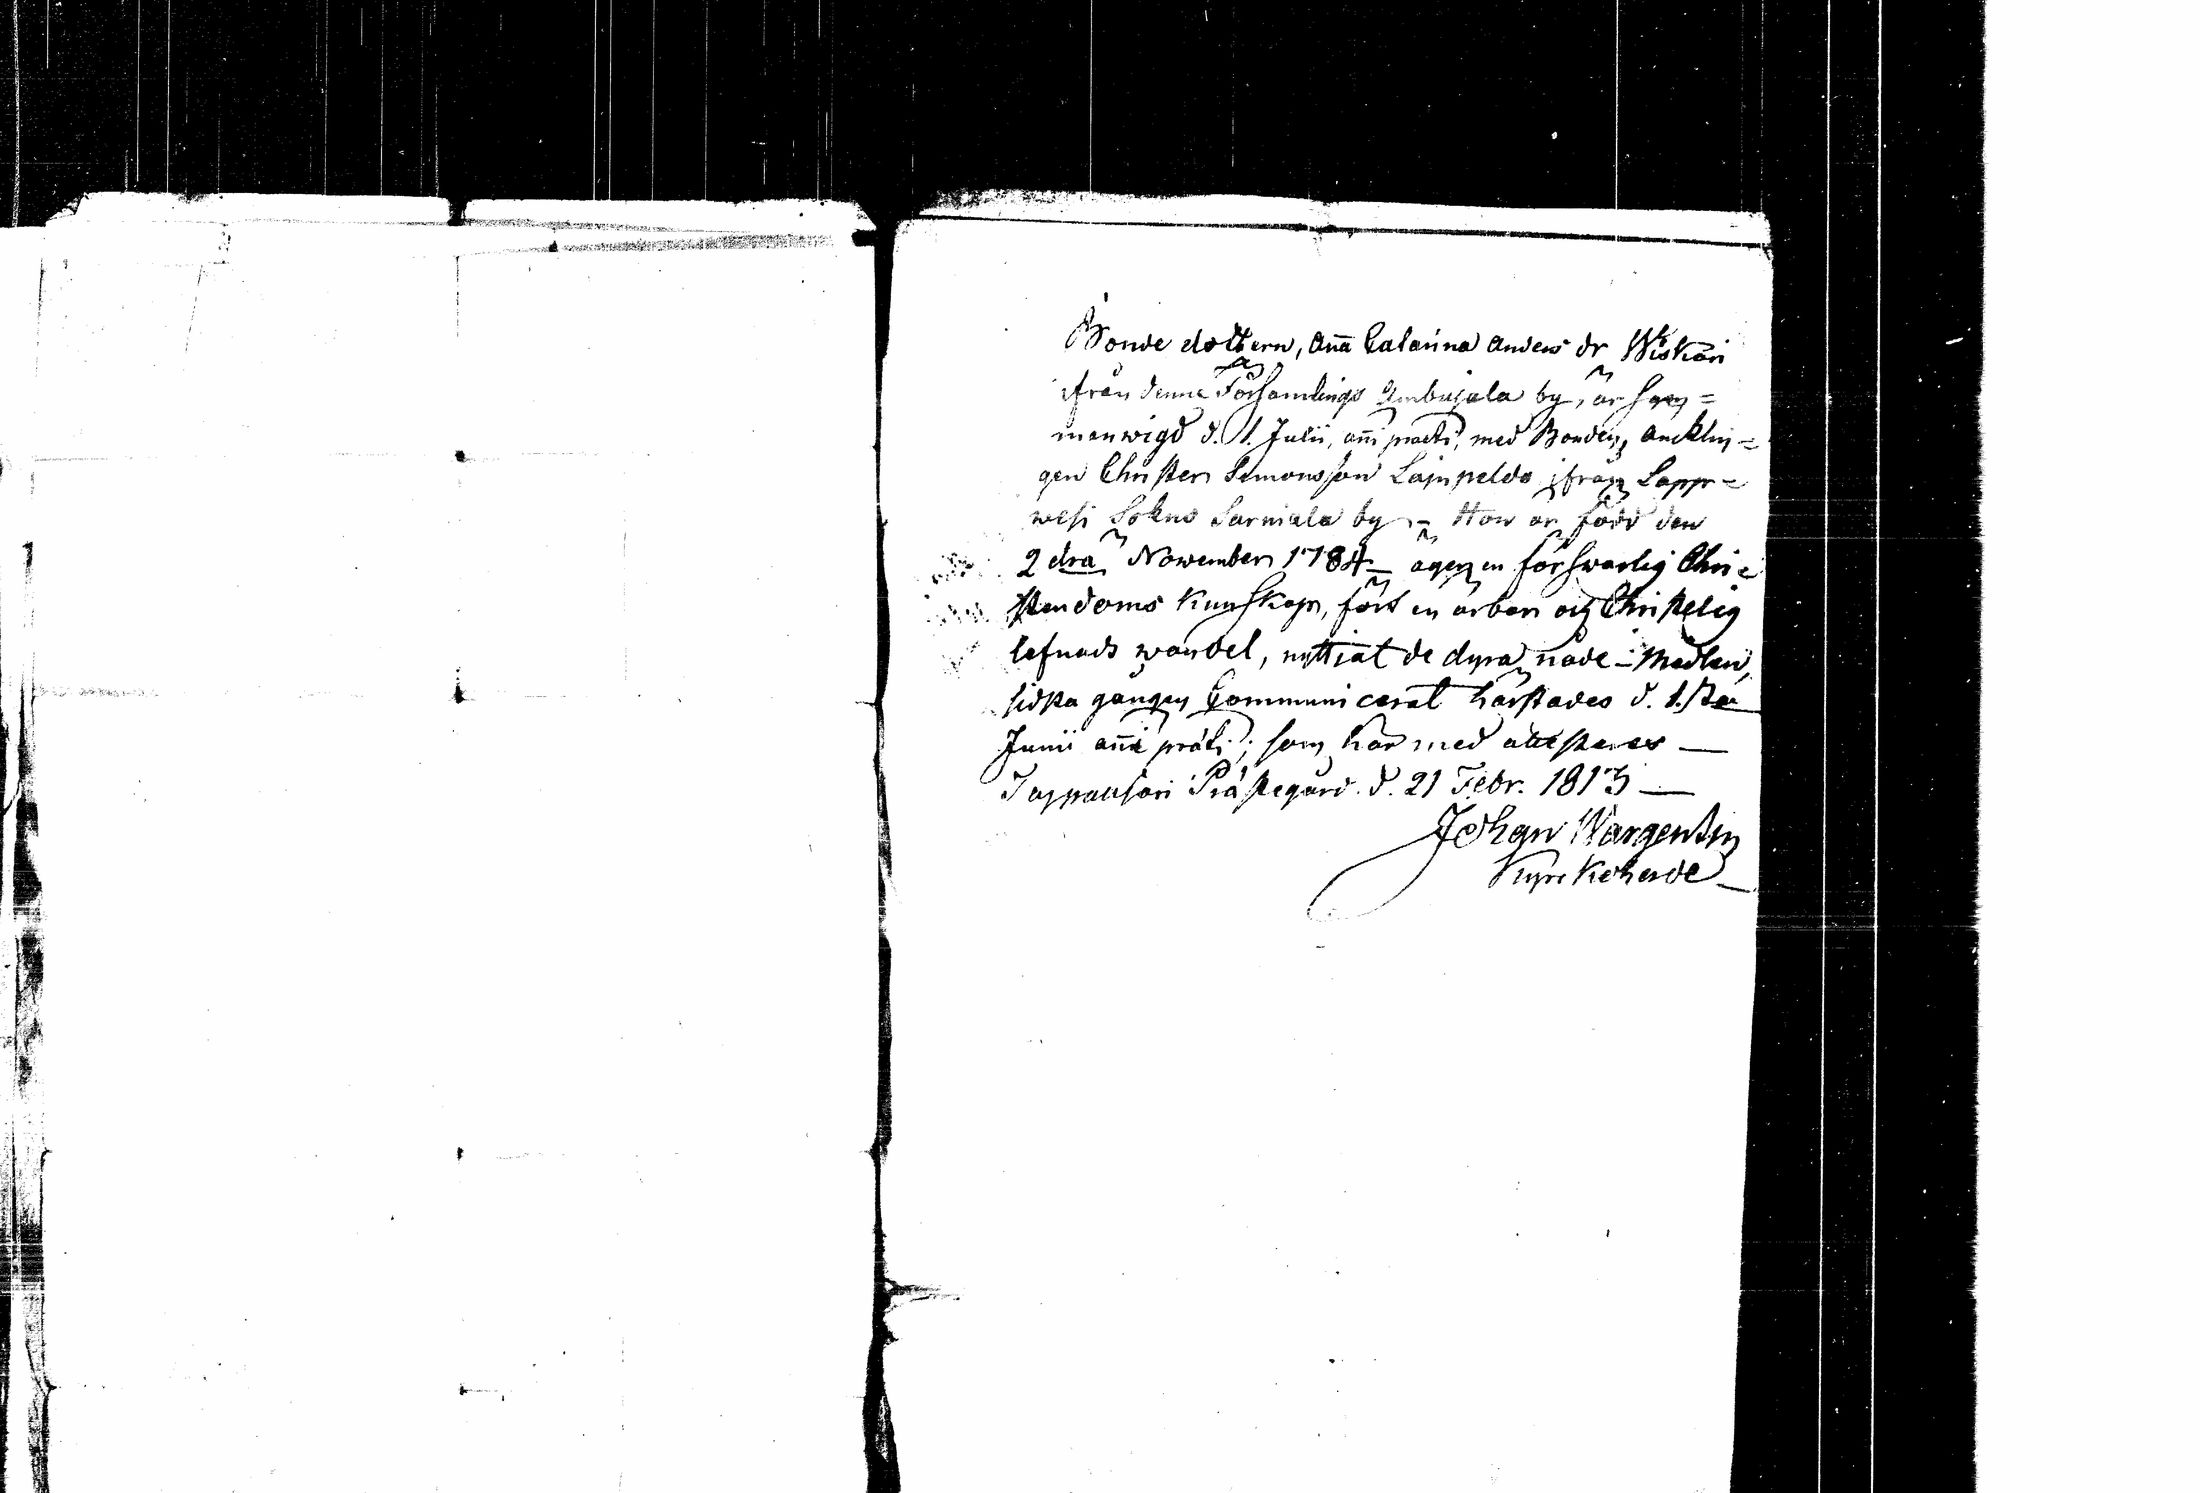 Bonde dottern, Aña Catarina Anders dr Wiskari
ifrån denna Församlings Umbujala by, är sam=
manwigd d. 1. Julii, añi praeti, med Bonden, Ancklin=
gen Christer Simonsson Lajnpelda ifrån Lapp=
wesi Sokns Sarviala by – Hon är född den
2 dra November 1784 – ägen en förswarlig Chri=
stendoms Kunskap, fört en ärbar och Christelig
lefnads wandel, nyttjat de dyra nåde-Medlen,
sidsta gången Communicerat härstädes d. 1.sta
Junii añi präti; som här med attesteras —
Taipalsari Prästegård. d. 21 Febr. 1813 —
Johan Wargentin
Kyrckoherde